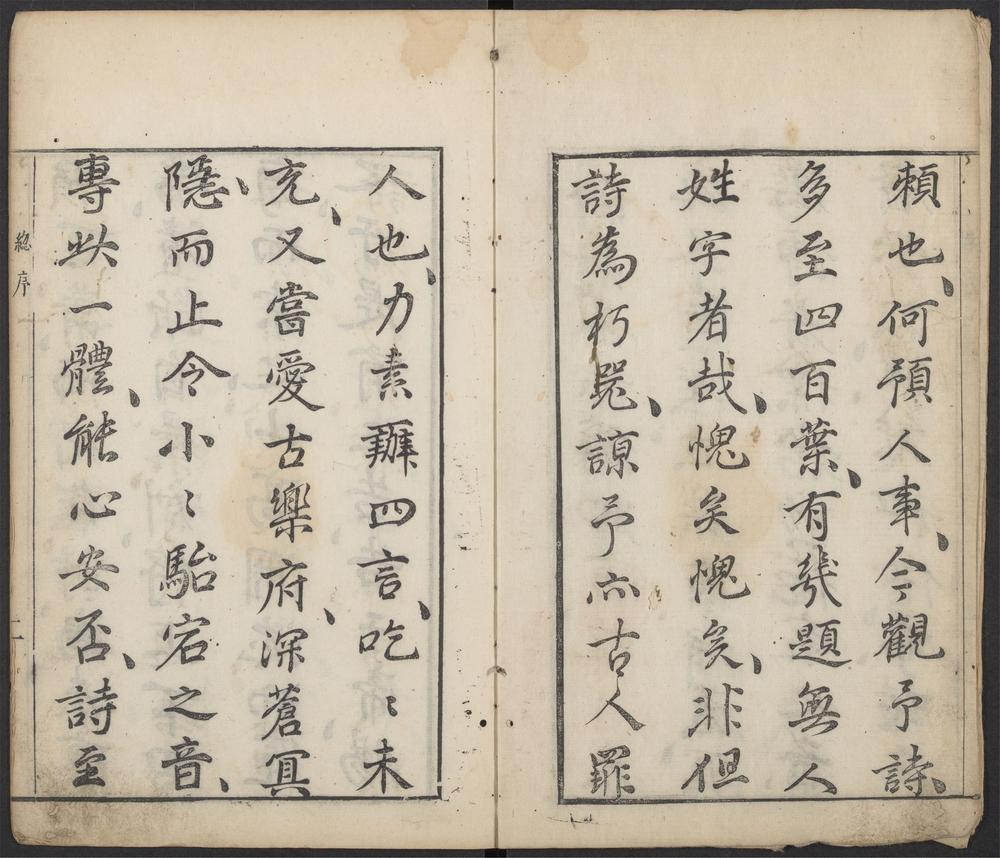 頼也、何預人事、今觀予詩、
多至四百葉、有幾題無人
姓字者哉、愧矣愧矣、非但
詩為朽冕、諒予亦古人罪
人也、力素辦四言、吃〻未
充、又嘗愛古樂府、深蒼冥
隱、而止令小〻駘宕之音、
專此一體、能心安否、詩至
總序
二